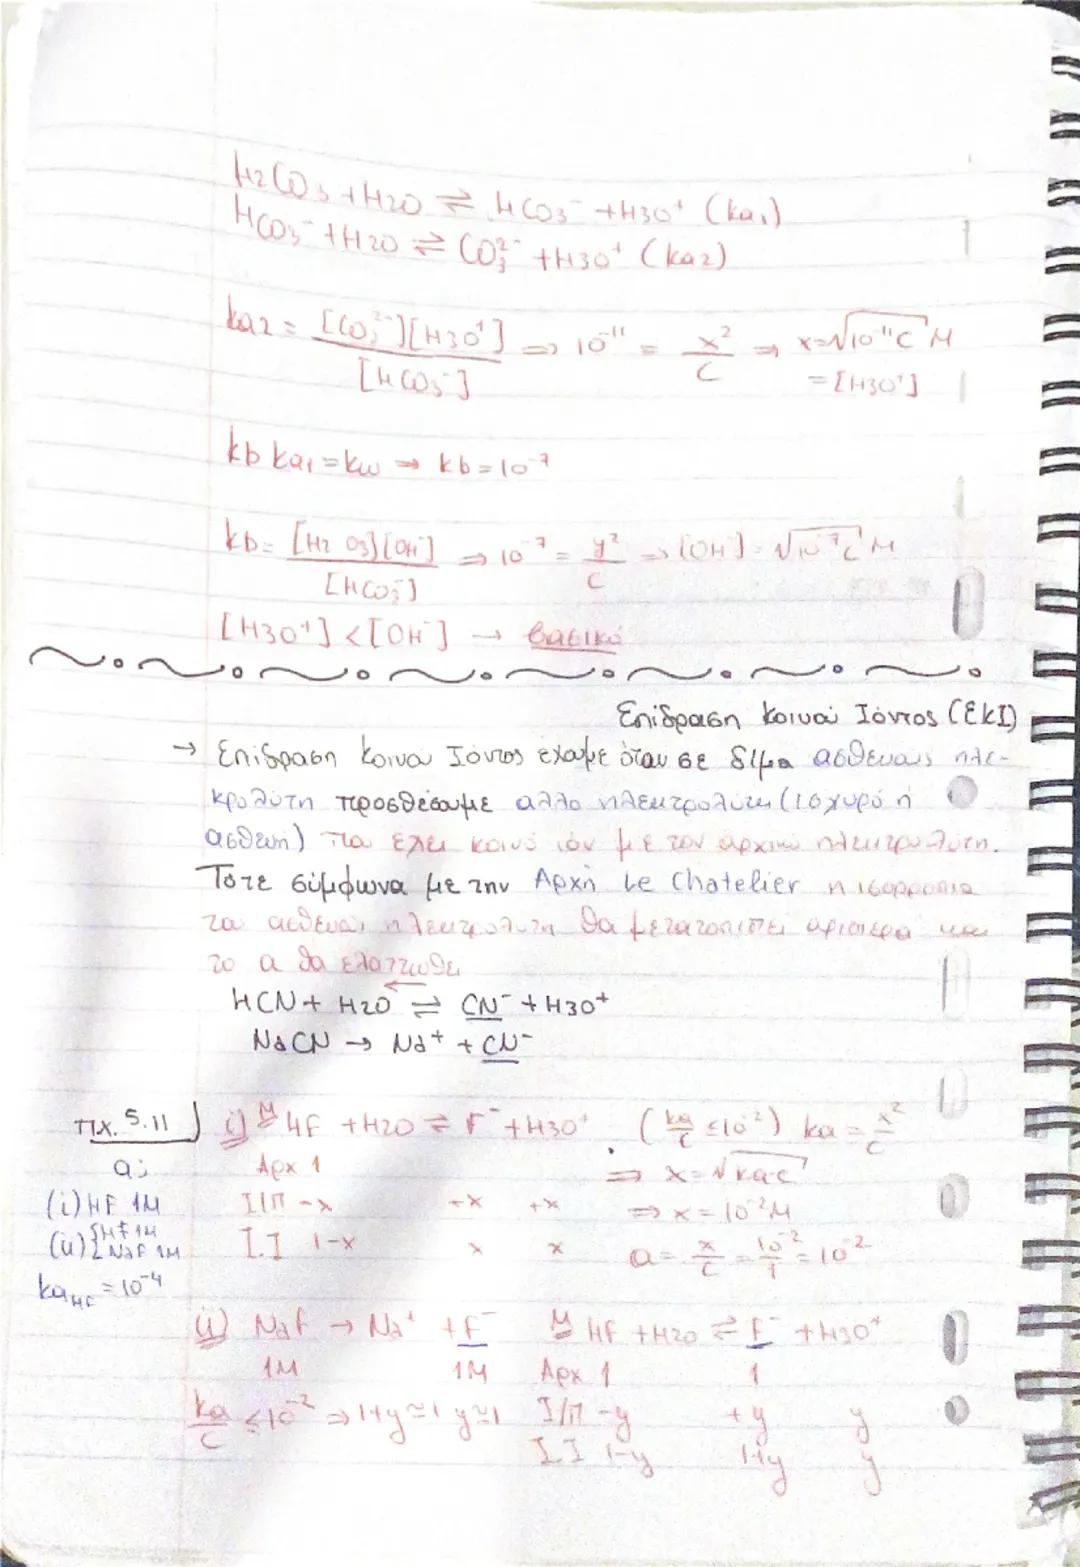 H2CO3 + H2O ⇌ HCO3⁻ + H3O⁺ (ka1)
HCO3⁻ + H2O ⇌ CO3²⁻ + H3O⁺ (ka2)
ka2 = [CO3²⁻][H3O⁺] / [HCO3⁻] ⇒ 10⁻¹¹ = x²/C ⇒ x = √10⁻¹¹C M
= [H3O⁺]
kb ka1 = kw ⇒ kb = 10⁻⁷
kb = [H2 O3][OH⁻] / [HCO3⁻] ⇒ 10⁻⁷ = y²/C ⇒ [OH⁻] = √10⁻⁷C M
[H3O⁺] < [OH⁻] → βασικό
Επίδραση Κοινού Ιόντος (ΕΚΙ)
→ Επίδραση Κοινού Ιόντος έχουμε όταν σε δ/μα ασθενούς ηλε-
κρολύτη προσθέσουμε άλλο ηλεκτρολύτη (ισχυρό ή
ασθενή) που έχει κοινό ιόν με τον αρχικό ηλεκτρολύτη.
Τότε σύμφωνα με την Αρχή Le Chatelier η ισορροπία
του ασθενούς ηλεκτρολύτη θα μετατοπιστεί αριστερά και
το α θα ελαττωθεί
←
HCN + H2O ⇌ CN⁻ + H3O⁺
NaCN → Na⁺ + CN⁻
πχ. 5.11) i) M HF + H2O ⇌ F⁻ + H3O⁺ (ka/C ≤ 10⁻²) ka = x²/C
α;
Αρχ 1 ⇒ x = √ka·c
(i) HF 1M Ι/Π -x -x +x ⇒ x = 10⁻² M
(ii) {HF 1M NaF 1M Ι.Ι 1-x x x α = x/C = 10⁻²/1 = 10⁻²
kaHF = 10⁻⁴
ii) NaF → Na⁺ + F⁻ M HF + H2O ⇌ F⁻ + H3O⁺
1M 1M Αρχ 1 1
ka/C ≤ 10⁻² ⇒ 1+y ≃ 1 y ≃ 1 Ι/Π -y +y y
Ι.Ι 1-y 1+y y